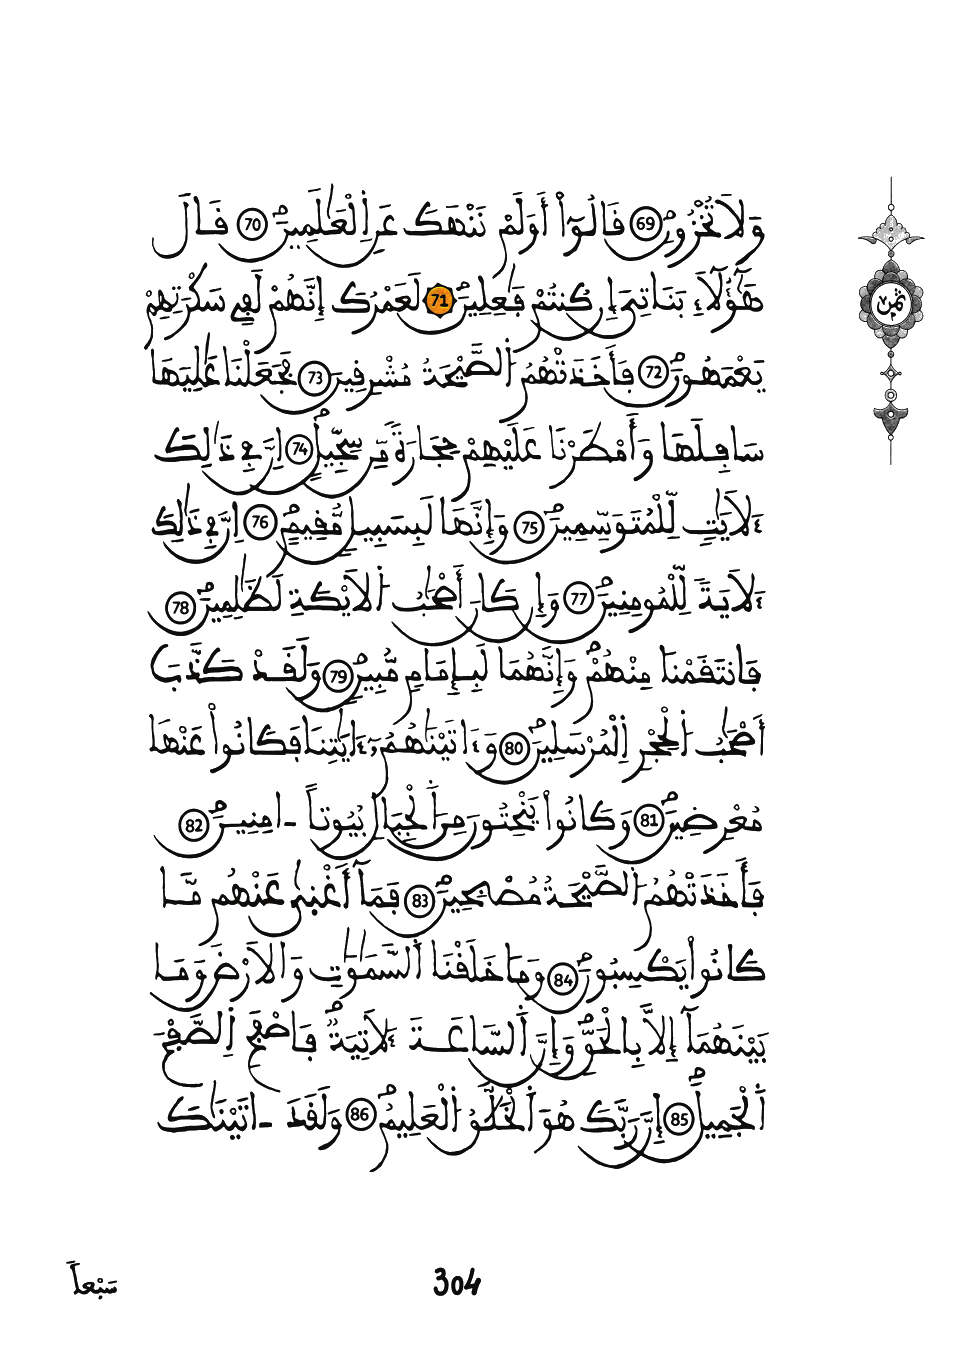 وَلَا تُخْزُونِ 69 قَالُوٓاْ أَوَلَمْ نَنْهَكَ عَنِ اِلْعَٰلَمِينَ 70 قَالَ
هَٰٓؤُلَآءِ بَنَاتِىَ إِن كُنتُمْ فَٰعِلِينَ 71 لَعَمْرُكَ إِنَّهُمْ لَفِى سَكْرَتِهِمْ
يَعْمَهُونَ 72 فَأَخَذَتْهُمُ اُ۬لصَّيْحَةُ مُشْرِقِينَ 73 فَجَعَلْنَا عَٰلِيَهَا
سَافِلَهَا وَأَمْطَرْنَا عَلَيْهِمْ حِجَارَةً مِّن سِجِّيلٍ 74 اِنَّ فِى ذَٰلِكَ
ءَلَايَٰتٍ لِّلْمُتَوَسِّمِينَ 75 وَإِنَّهَا لَبِسَبِيلٍ مُّقِيمٍ 76 اِنَّ فِى ذَٰلِكَ
ءَلَايَةً لِّلْمُومِنِينَ 77 وَإِن كَانَ أَصْحَٰبُ اُ۬لَايْكَةِ لَظَٰلِمِينَ 78
فَانتَقَمْنَا مِنْهُمْ وَإِنَّهُمَا لَبِإِمَامٍ مُّبِينٍ 79 وَلَقَدْ كَذَّبَ
أَصْحَٰبُ اُ۬لْحِجْرِ اِ۬لْمُرْسَلِينَ 80 وَءَاتَيْنَٰهُمُۥٓ ءَايَٰتِنَا فَكَانُواْ عَنْهَا
مُعْرِضِينَ 81 وَكَانُواْ يَنْحِتُونَ مِنَ اَ۬لْجِبَالِ بُيُوتاً ـ امِنِينَ 82
فَأَخَذَتْهُمُ اُ۬لصَّيْحَةُ مُصْبِحِينَ 83 فَمَآ أَغْنِىٰ عَنْهُم مَّا
كَانُواْ يَكْسِبُونَ 84 وَمَا خَلَقْنَا اَ۬لسَّمَٰوَٰتِ وَالَارْضَ وَمَا
بَيْنَهُمَآ إِلَّا بِالْحَقِّ وَإِنَّ اَ۬لسَّاعَةَ ءَلَاتِيَةٌ فَاصْفَحِ اِ۬لصَّفْحَ
اَ۬لْجَمِيلَ 85 إِنَّ رَبَّكَ هُوَ اَ۬لْخَلَّٰقُ اُ۬لْعَلِيمُ 86 وَلَقَدَ ـ اتَيْنَٰكَ
ثمن
سَبْعاً
304